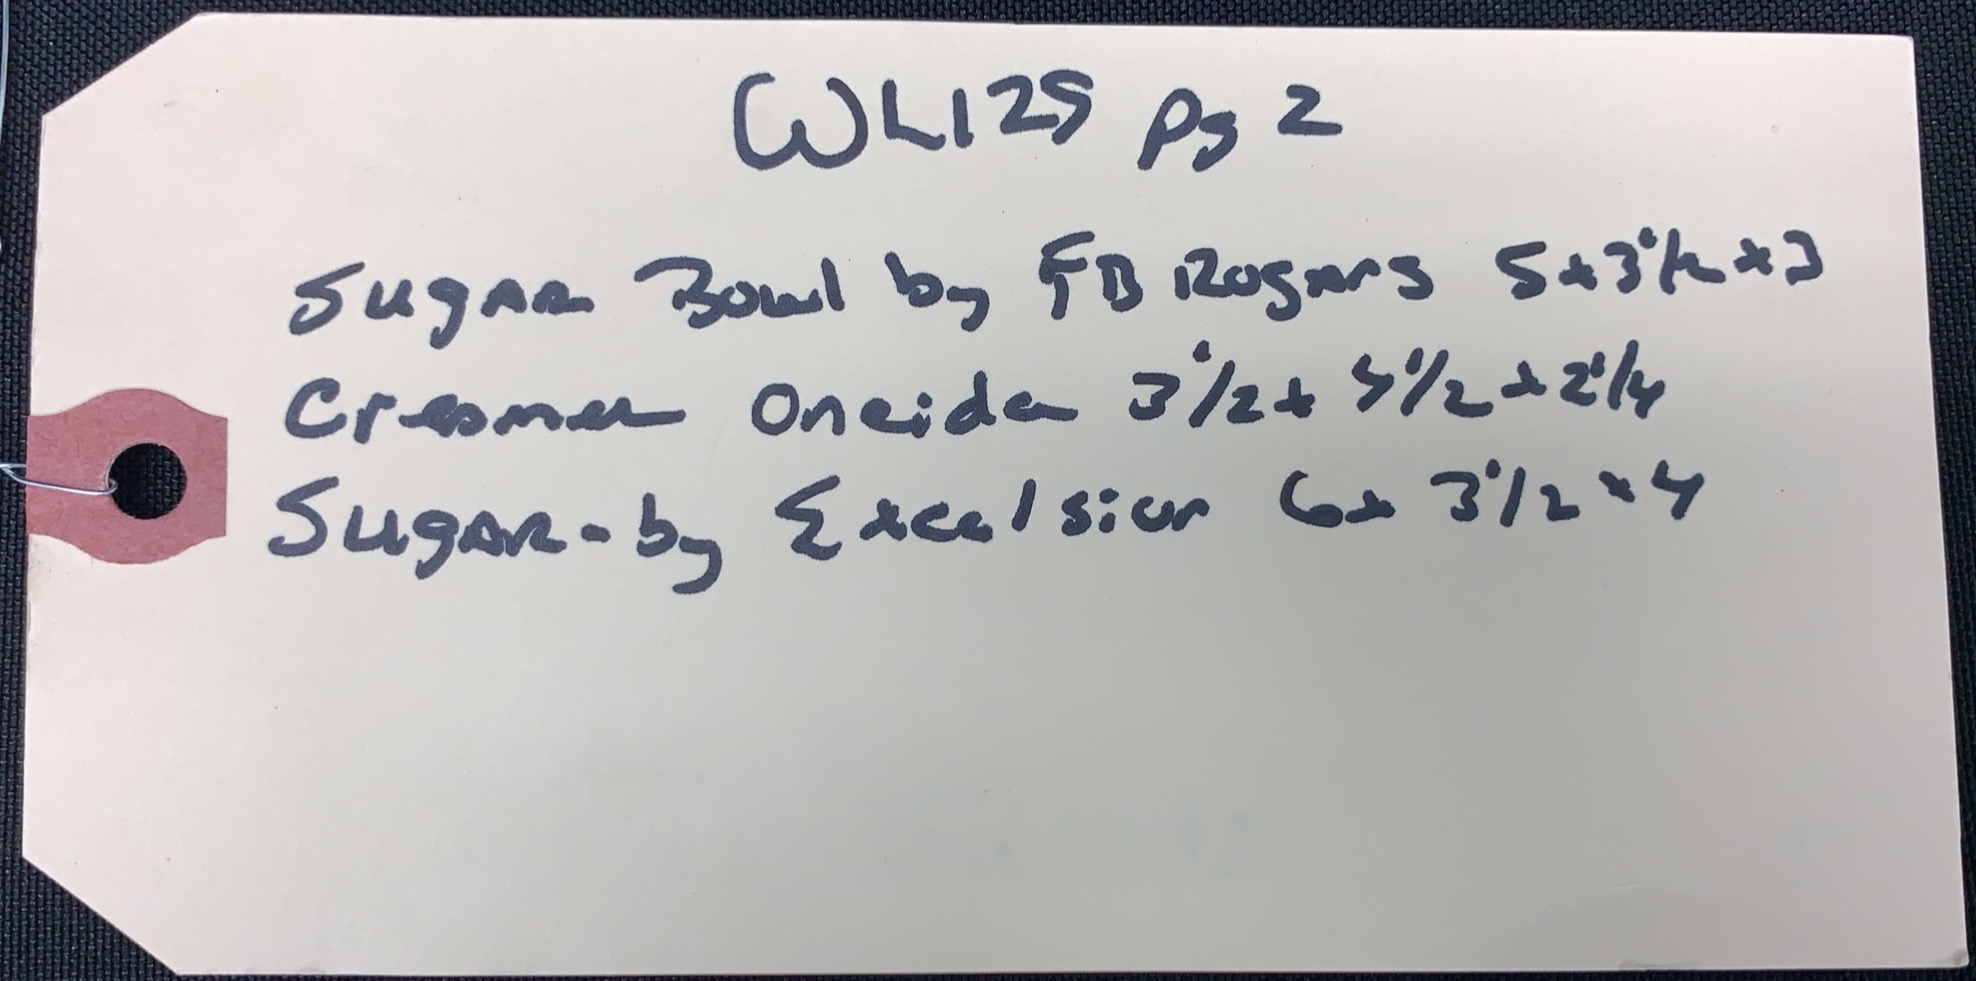 WL125 Pg 2
Sugar Bowl by FB Rogers 5x3 1/2 x3
Creamer Oneida 3 1/2 x 1/2 x 2 1/4
Sugar - by Excelsior 6x 3 1/2 x 4